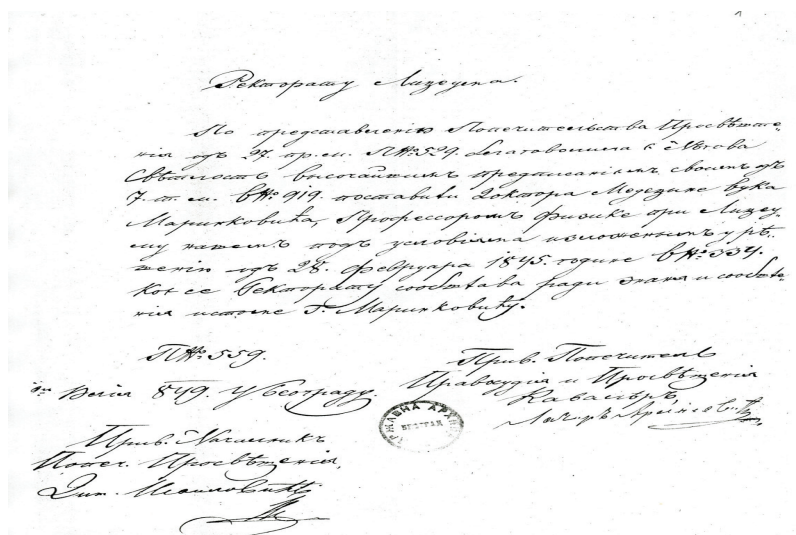 Ректорату Лицеума.
По представленію Попечительства Просвѣште-
нія одъ 27. пр. м. П№ 529. благоволила є Нѣгова
Свѣтлость высочайшимъ предписаніемъ своимъ одъ
7. т. м. В№ 919. поставити Доктора Медецине Вука
Маринковића, Профессоромъ Физике при Лицеу-
му нашемъ подъ условіяма изложенимъ у рѣ-
шенію одъ 28. Фебруара 1845. године В№ 334.
кое се Ректорату сообштава ради знаня и сообште-
нія истоме Г. Маринковићу.
П№ 559.
Юлія 849. у Београду.
Прив. Попечитель
Правосудія и Просвѣштенія
Кавалѣръ,
Прив. Началникъ
Попеч. Просвѣштенія,
Дим. Исаиловићъ
ДРЖАВНА АРХИВА
БЕОГРАД